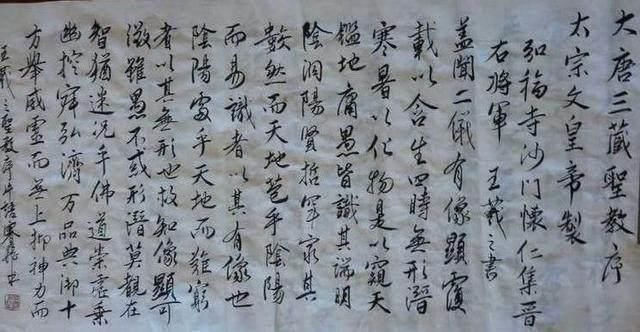 大唐三藏聖教序
太宗文皇帝製
弘福寺沙門懷仁集晉
右將軍王羲之書
蓋聞二儀有像顯覆
載以含生四時無形潛
寒暑以化物是以窺天
鑑地庸愚皆識其端明
陰洞陽賢哲罕窮其
數然而天地苞乎陰陽
而易識者以其有像也
陰陽處乎天地而難窮
者以其無形也故知像顯可
徵雖愚不惑形潛莫覩在
智猶迷況乎佛道崇虛乗
幽控寂弘濟万品典御十
方舉威靈而無上抑神力而
王羲之聖教序